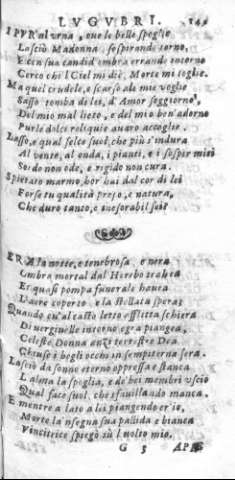 LVGVBRI.
I PVR al'vrna, oue le belle spoglie
Lasciò Madonna, sospirando torno,
E con sua candid'ombra errando intorno
Cerco che'l Ciel mi diè, Morte mi toglie.
Ma quel crudele, e scarso a le mie voglie
Sasso tomba di lei, d'Amor soggiorno,
Del mio mal lieto, e del mio ben adorno
Pur le dolci reliquie auaro accoglie.
Lasso, e qual selce suol, che più s'indura
Al vento, al onda, i pianti, e i sospir miei
Sordo non ode, e rigido non cura.
Spietato marmo, hor hai dal cor di lei
Forse tu qualità preso, e natura,
Che duro tanto, e inesorabil sei?
ERA la notte, e tenebrosa, e nera
Ombra mortal dal Herebo trahea
Et quasi pompa funerale hauea
L'aere coperto, e la stellata spera;
Quando cu'al casto letto afflitta schiera
Di verginelle intorno egra piangea,
Celeste Donna anzi terrestre Dea
Chiuse i begli occhi in sempiterna sera.
Lasciò da sonno eterno oppressa e stanca
L'alma la spoglia, e de bei membri vscio
Qual face suol, che sfauillando manca.
E mentre a lato a lei piangendo er'io,
Morte la'nsegna sua pallida e bianca
Vincitrice spiegò sù'l volto mio.
G 3